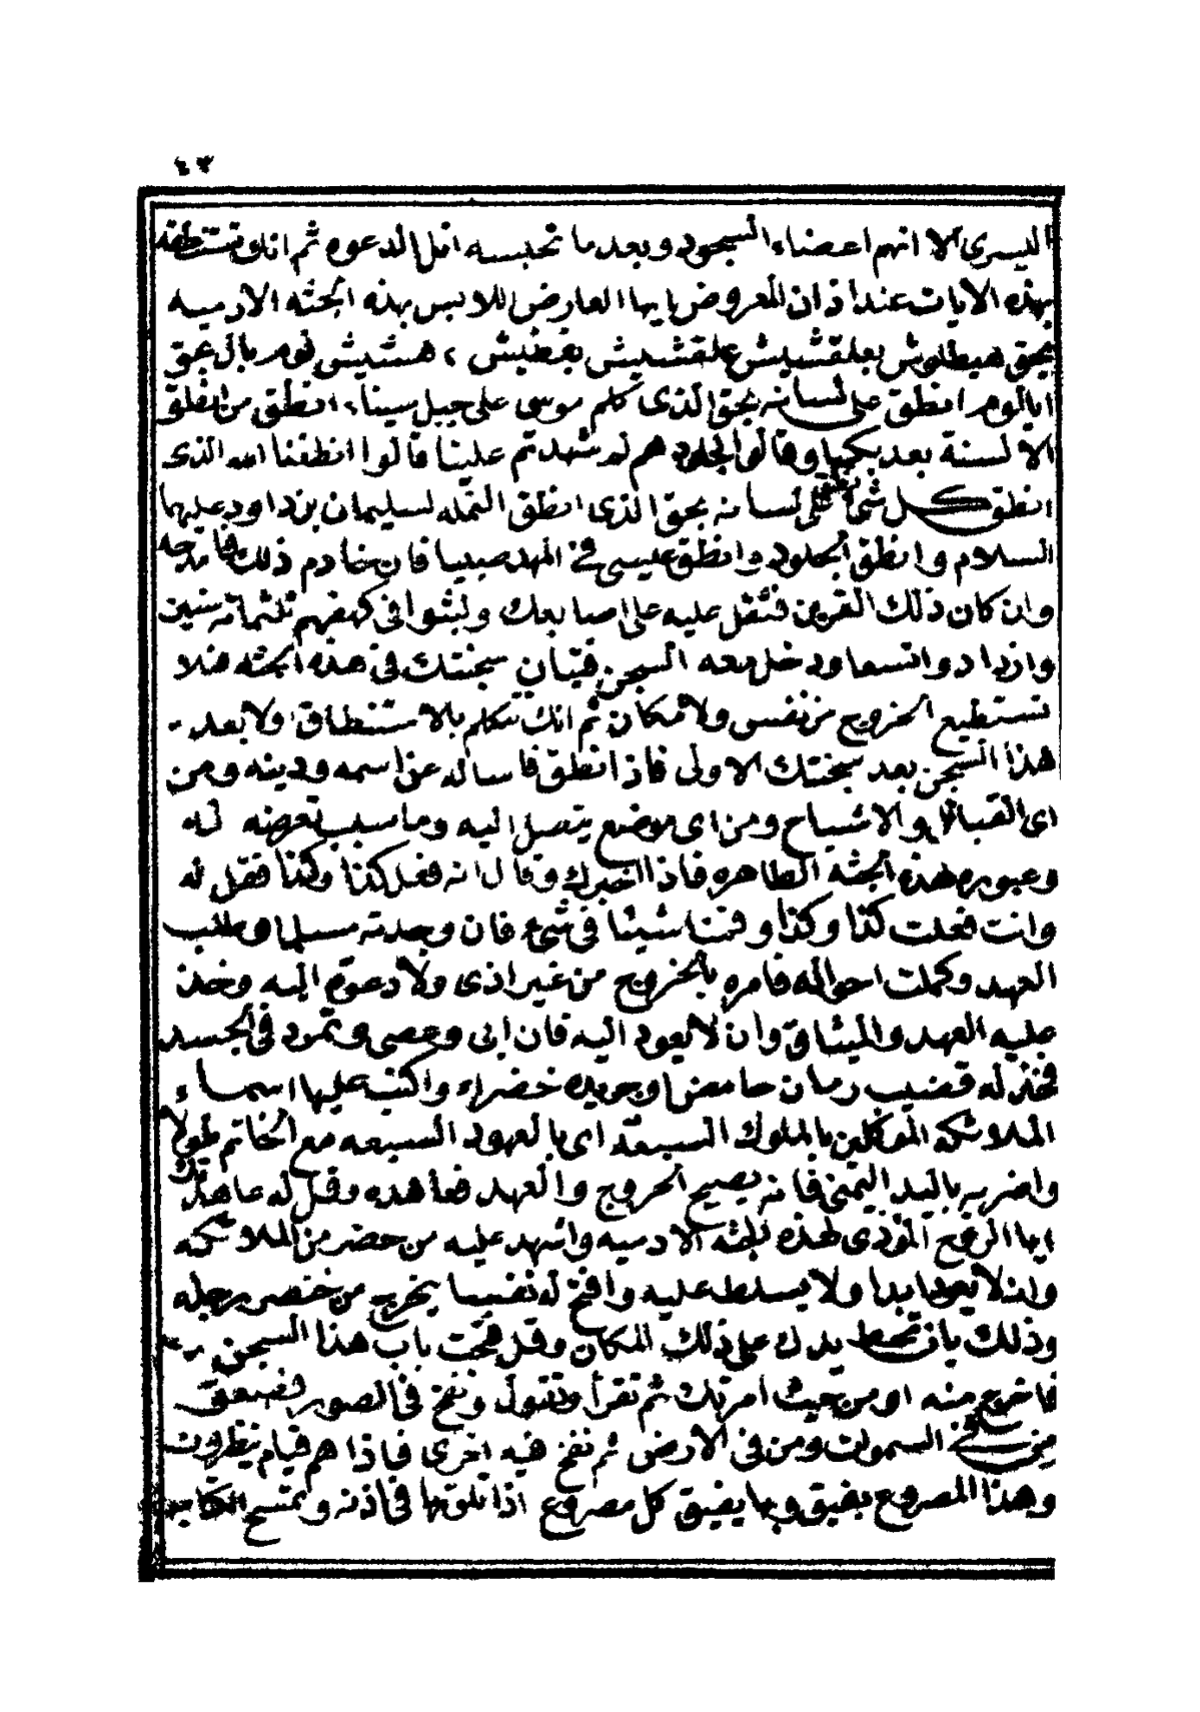 ٤٣
اليسرى الا انهم اعضاء السجود وبعد ما تحبسه اقل الدعوه ثم انك تستنطقه
بهذه الايات عند اذان المعروض ايها العارض اللابس بهذه الجثه الادميه
بحق هيطلوش بعلقشيش علقشيش بغطيش ، هشيش نوم بال بحق
ايالوم انطق على لسانه بحق الذى كلم موسى على جبل سينا، انطق من انطق
الالسنة بعد بكيها وقالوا لجلودهم لم شهدتم علينا قالوا انطقنا الله الذى
انطق كل شئ انطق على لسانه بحق الذى انطق النمله لسليمان بن داود عليهما
السلام وانطق الجلود وانطق عيسى فى المهد صبيا فان خادم ذلك
وان كان ذلك القرين فتثقل عليه على اصابعك ولبثوا فى كهفهم ثلثمائه سنين
وازدادوا تسعا ودخل معه السجن فتيان سجنتك فى هذه الجثه فلا
تستطيع الخروج من نفس ولا مكان ثم انك تتكلم بالاستنطاق ولا بعد
هذا السجن بعد سجنتك الاولى فاذا نطق فاساله عن اسمه ودينه ومن
اى القبائل والاشياح ومن اى موضع يتصل اليه وما سبب تعرضه له
وعبوره لهذه الجثه الطاهره فاذا اخبرك وقال انه فعل كذا وكذا فقل له
وانت فعلت كذا وكذا و شيئا فى شئ فان وجدته مسلما وطلب
العهد وكملت احواله فامره بالخروج من غير اذى ولا دعوه اليه وخذ
عليه العهد والميثاق وان لا يعود اليه فان ابى وعصى وتمرد فى الجسد
فخذ له قضيب رمان حامض او جريده خضراء واكتب عليها اسماء
الملائكه الموكلين بالملوك السبعه اى بالعهود السبعه مع الخاتم طولا
واضربه باليد اليمنى فانه يصيح الخروج والعهد فعاهده وقل له عاهدتك
ايها الروح الموذى لهذه الجثه الادميه واشهد عليه من حضر من الملائكه
وان لا يعود ابدا ولا يسلط عليه وافتح له نفيسا يخرج من خنصر رجله
وذلك بان تحط يدك على ذلك المكان وقل فتحت باب هذا السجن
فاخرج منه او من حيث امرتك ثم تقرأ وتقول ونفخ فى الصور فصعق
من فى السموات ومن فى الارض ثم نفخ فيه اخرى فاذا هم قيام ينظرون
وهذا المصروع يفيق وبها يفيق كل مصروع اذا تلوتها فى اذنه وتمسح